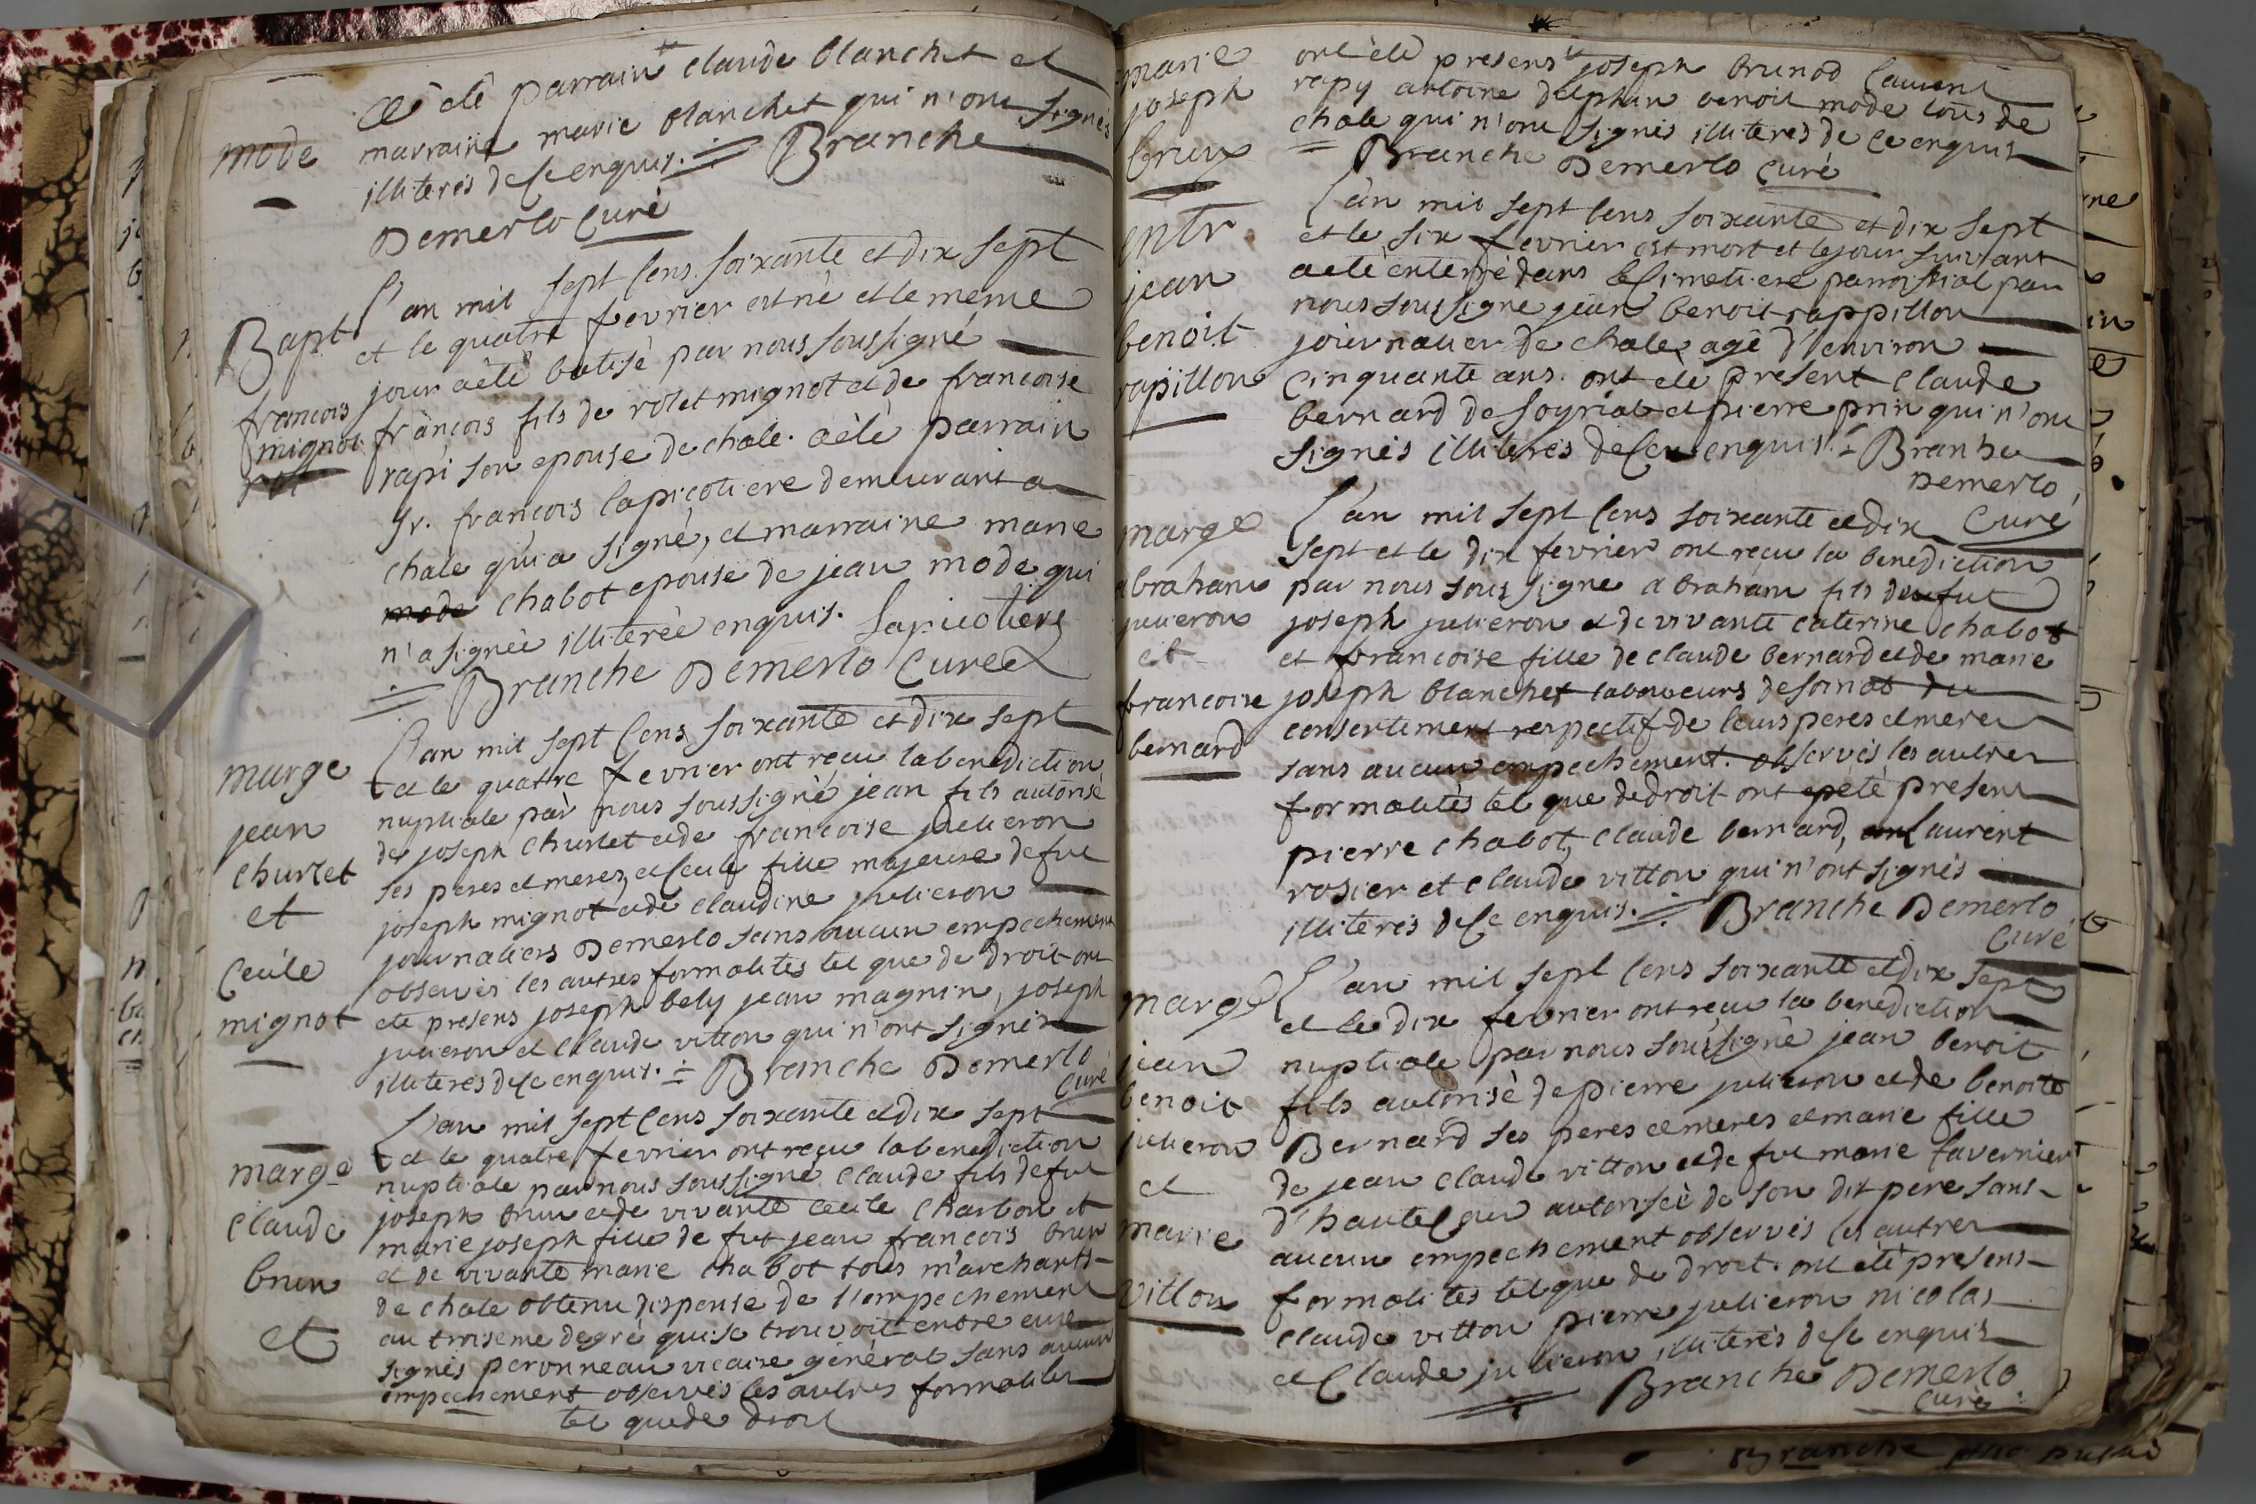 mode
a été parrain claude blanchet et
marraine marie blanchet qui n'ont signés
illiterés de ce enquis. Branche
Demerlo Curé
Bapt
francois
mignot
L'an mil sept cens soixante et dix sept
et le quatre fevrier est né et le meme
jour a été batisé par nous soussigné
francois fils de rolet mignot et de francoise
rapi son epouse de chale. a été parrain
Sr. francois lapicotiere demeurant a
chale qui a signé, et marraine marie
mode chabot epouse de jean mode qui
n'a signée illiterée enquis. Lapicotiere
Branche Demerlo Curé
marge
jean
churlet
et
Cecile
mignot
L'an mil sept cens soixante et dix sept
et le quatre fevrier ont reçu la benediction
nuptiale par nous soussigné jean fils autorisé
de joseph churlet et de francoise julieron
ses peres et meres, et Cecile fille majeure de fut
joseph mignot et de claudine julieron
journaliers Demerlo sans aucun empechement
observés les autres formalités tel que de droit ont
eté presens joseph bely jean magnin, joseph
julieron et claude vitton qui n'ont signés
illiterés de ce enquis. Branche Demerlo
Curé
marge
claude
brun
et
L'an mil sept cens soixante et dix sept
et le quatre fevrier ont reçu la benediction
nuptiale par nous soussigné claude fils de fut
joseph brun et de vivante cecile charbon et
marie joseph fille de fut jean francois brun
et de vivante marie chabot tous marchants
de chale obtenu dispense de l'empechement
au troiseme degré qui se trouvoit entre eux
signés peronneau vicaire général sans aucun
empechement observés les autres formalités
tel que de droit
marie
joseph
brun
ont été presens joseph brunod laurent
rapy antoine delphin benoit mode tous de
chale qui n'ont signés illiterés de ce enquis
Branche Demerlo Curé
entr
jean
benoit
rapillon
L'an mil sept cens soixante et dix sept
et le six fevrier est mort et le jour suivant
a eté enterré dans le cimetiere parroissial par
nous soussigné jean benoit rappillon
journalier de chale agé d'environ
cinquante ans. ont eté present claude
bernard de soyriat et pierre prin qui n'ont
signés illiterés de ce enquis. Branche
Demerlo
Curé
marge
abraham
julieron
et
francoise
bernard
L'an mil sept cens soixante et dix
sept et le dix fevrier ont reçu la benediction
par nous sous signé abraham fils de fut
joseph julieron et de vivante caterine chabot
et francoise fille de claude bernard et de marie
joseph blanchet laboureurs de soinat du
consentement respectif de leurs peres et meres
sans aucun empechement. observés les autres
formalités tel que de droit ont eté present
pierre chabot, claude bernard, laurent
rosier et claude vitton qui n'ont signés
illiterés de ce enquis. Branche Demerlo
Curé
marge
jean
benoit
julieron
et
marie
vitton
L'an mil sept cens soixante et dix sept
et le dix fevrier ont reçu la benediction
nuptiale par nous soussigné jean benoit
fils autorisé de pierre julieron et de benoite
Bernard ses peres et meres et marie fille
de jean claude vitton et de fut marie tavernier
autorisée de son dit pere sans
aucun empechement observés les autres
formalités tel que de droit. ont eté presens
claude vitton pierre julieron nicolas
et Claude julieron illiterés de ce enquis
Branche Demerlo
Curé